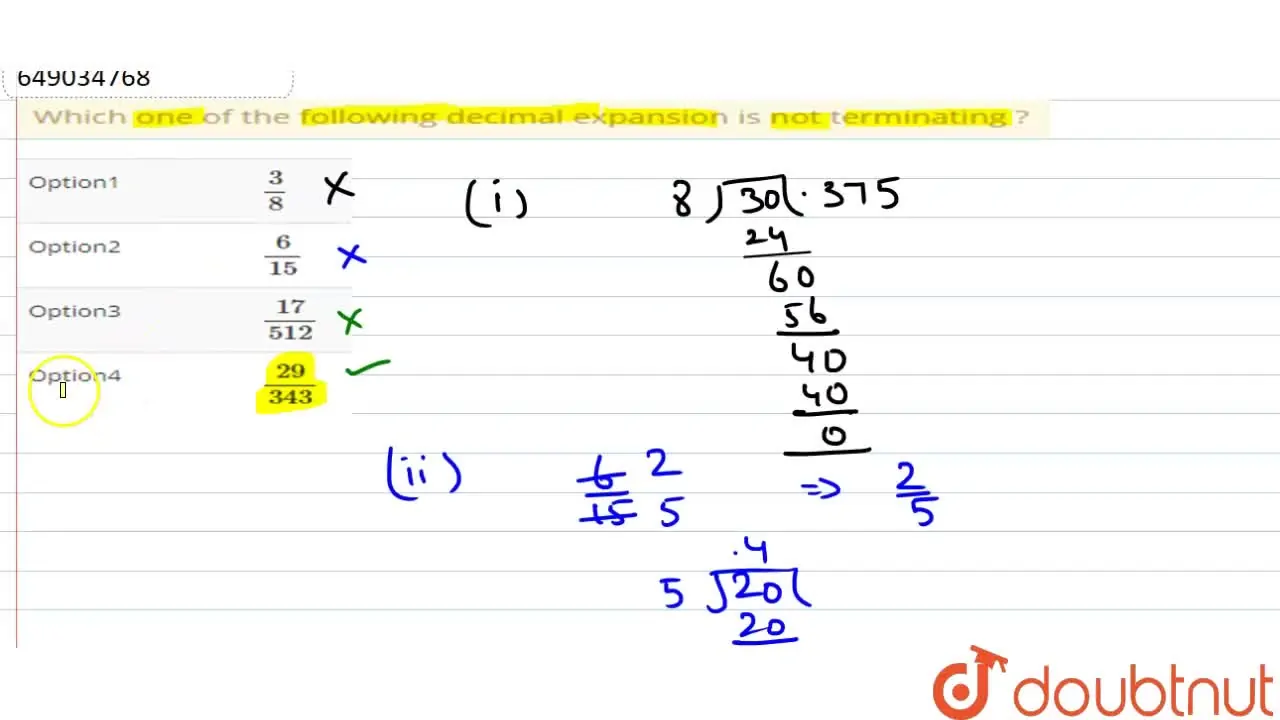 649034768
Which one of the following decimal expansion is not terminating ?
Option1 3/8 X
Option2 6/15 X
Option3 17/512 X
Option4 29/343 ✓
(i) 8 ) 30 ( .375
24
60
56
40
40
0
(ii) 6/15 2/5 => 2/5
.4
5 ) 20 (
20
doubtnut